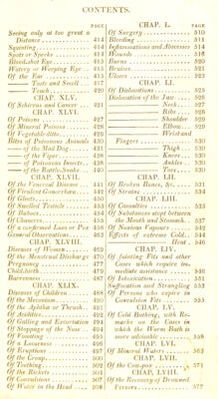 CONTENTS.
PAGE
Seeing only at too great a
Distance 414
Squinting 414
Spots or Specks
Blood-shot Eye
Watery or Weeping Eye 415
Of the Ear 415
Taste and Smell 417
Touch 420
CHAP. XLV.
Of Schirrus and Cancer 421
CHAP. XLVI.
Of Poisons 427
Of Mineral Poisons 428
Of Vegetable ditto
Bites of Poisonous Animals 430
of the Mad Dog
of the Viper 438
of Poisonous Insects
of the Rattle-Snake
CHAP. XLVII.
Of the Venereal Disease
Of Virulent Gonorrhœa
Of Gleets 450
Of Swelled Testicle
Of Buboes 454
Of Chancres 455
Of a confirmed Lues or Pox
General Observations 463
CHAP. XLVIII.
Diseases of Women
Of the Menstrual Discharge
Pregnancy 477
Child-birth 479
Barrenness 487
CHAP. XLIX.
Diseases of Children 488
Of the Meconium 490
Of the Aphthæ or Thrush
Of Acidities 492
Of Galling and Excoriation 494
Of Stoppage of the Nose
Of Vomiting
Of a Looseness 496
Of Eruptions 497
Of the Croup
Of Teething
Of the Rickets
Of Convulsions
Of Water in the Head
CHAP. L.
PAGE
Of Surgery 510
Bleeding 511
Inflammations and Abscesses 514
Wounds 518
Burns
Bruises 521
Ulcers 523
CHAP. LI.
Of Dislocations 525
Dislocation of the Jaw 528
Neck
Ribs
Shoulder
Elbow
Wrist and
Fingers 530
Thigh
Knees
Ankles
Toes
CHAP. LII.
Of Broken Bones, &c. 531
Of Strains 534
CHAP. LIII.
Of Casualties 535
Of Substances stopt between
the Mouth and Stomach
Of Noxious Vapours 542
Effects of extreme Cold
Heat 546
CHAP. LIV.
Of fainting Fits and other
Cases which require im-
mediate assistance
Of Intoxication 551
Suffocation and Strangling 553
Of Persons who expire in
Convulsion Fits 555
CHAP. LV.
Of Cold Bathing, with Re-
marks on the Cases in
which the Warm Bath is
more adviseable 556
CHAP. LVI.
Of Mineral Waters 563
CHAP. LVII.
Of the Cow-pox 571
CHAP. LVIII.
Of the Recovery of Drowned
Persons 577